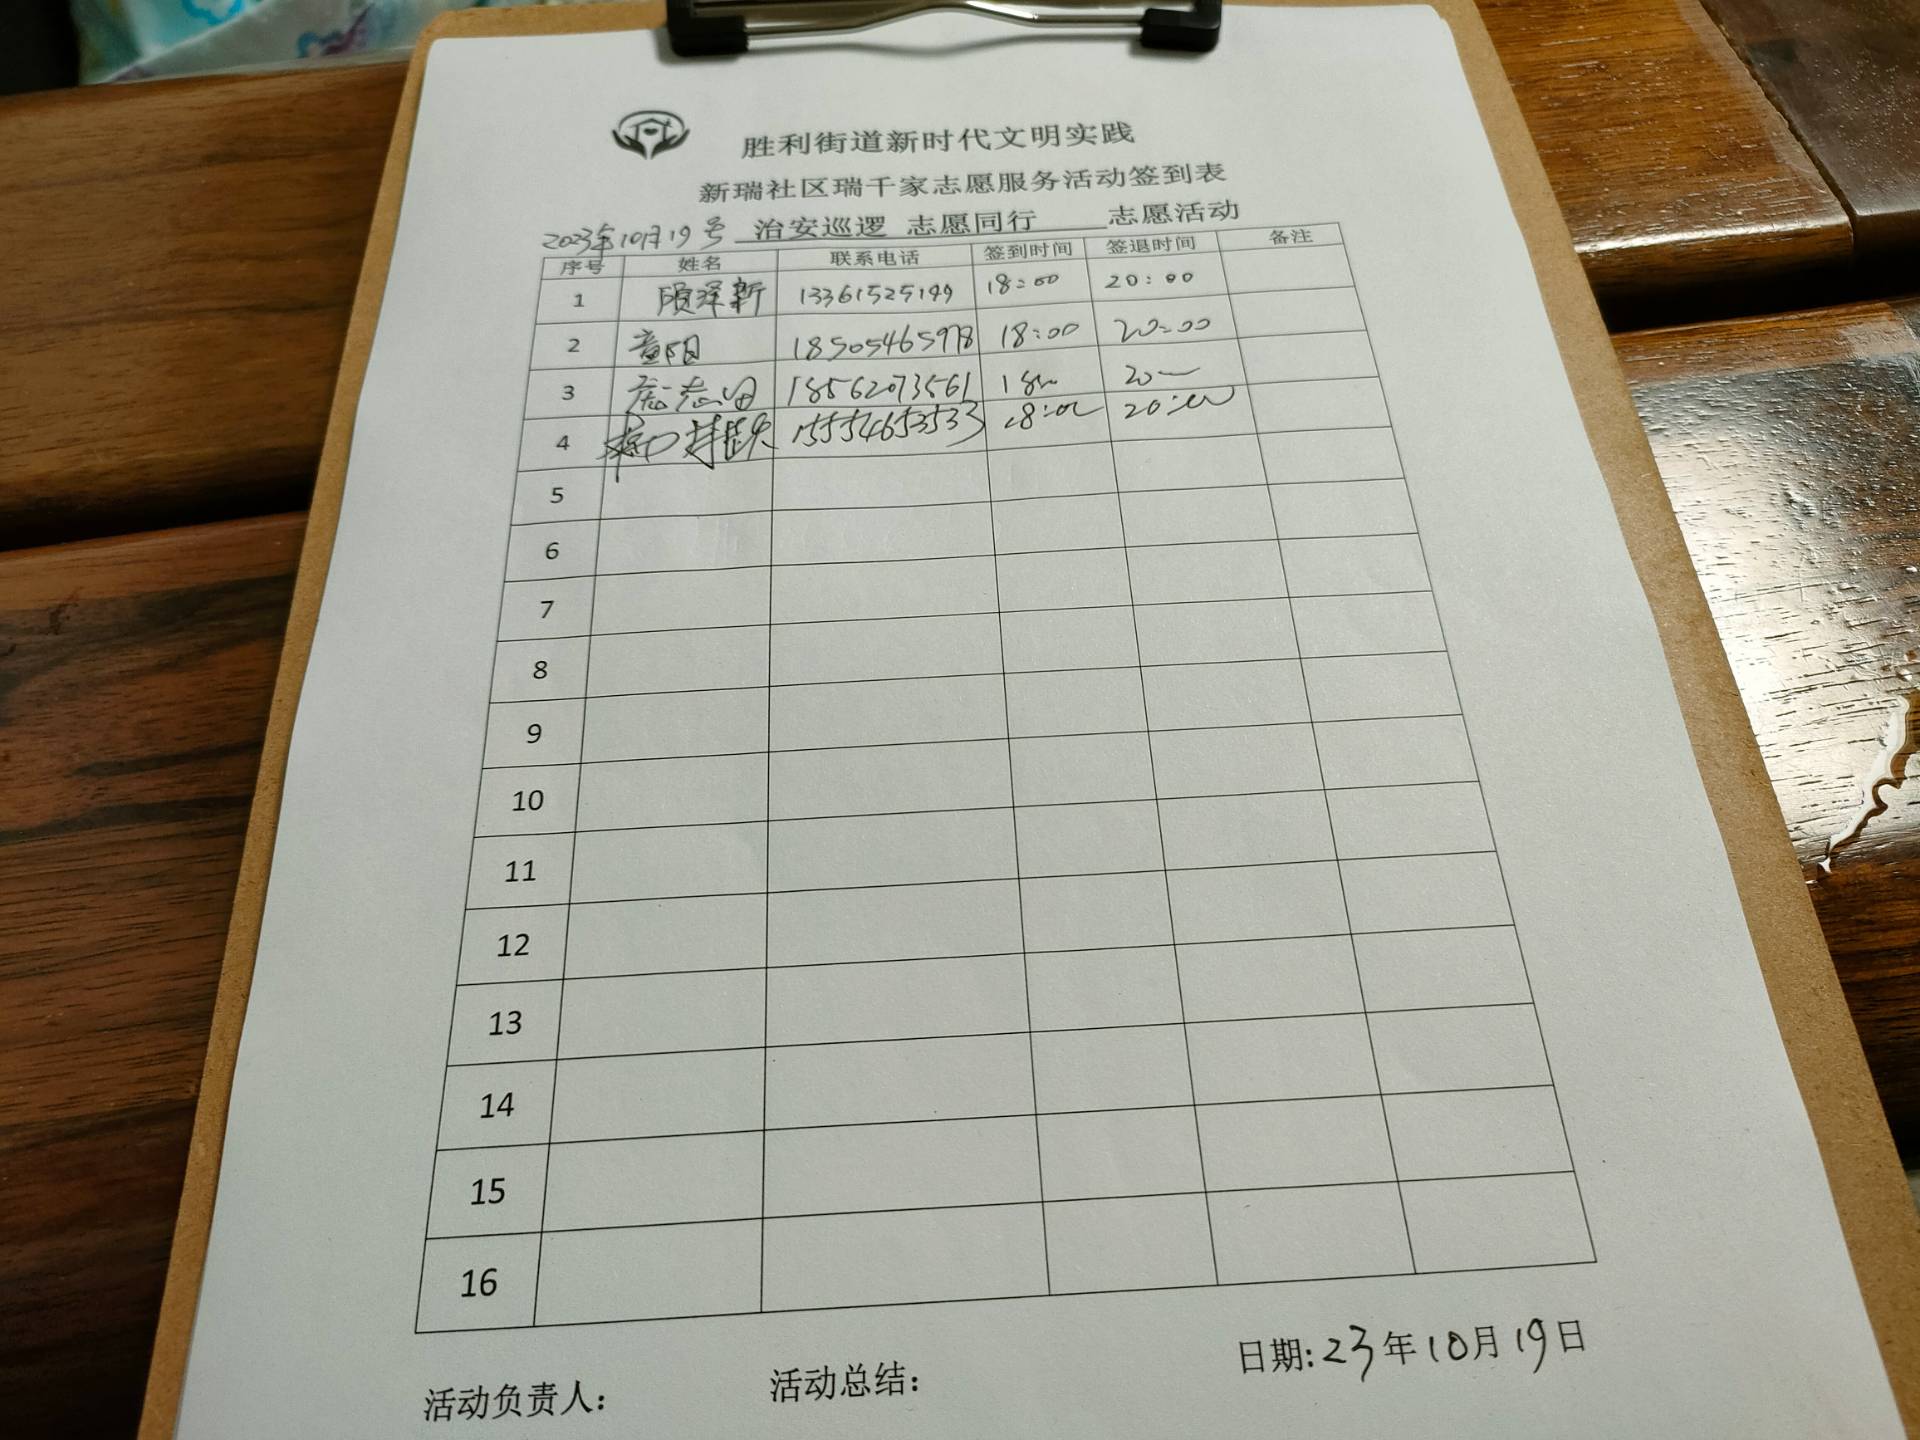 胜利街道新时代文明实践
新瑞社区瑞千家志愿服务活动签到表
2023年10月19号 治安巡逻 志愿同行 志愿活动
序号 姓名 联系电话 签到时间 签退时间 备注
1 顾泽新 13361525149 18:00 20:00
2 童阳 18505465978 18:00 20:00
3 18562073561 18 20
4 15554653533 18:00 20:00
5
6
7
8
9
10
11
12
13
14
15
16
日期:23年10月19日
活动负责人: 活动总结: